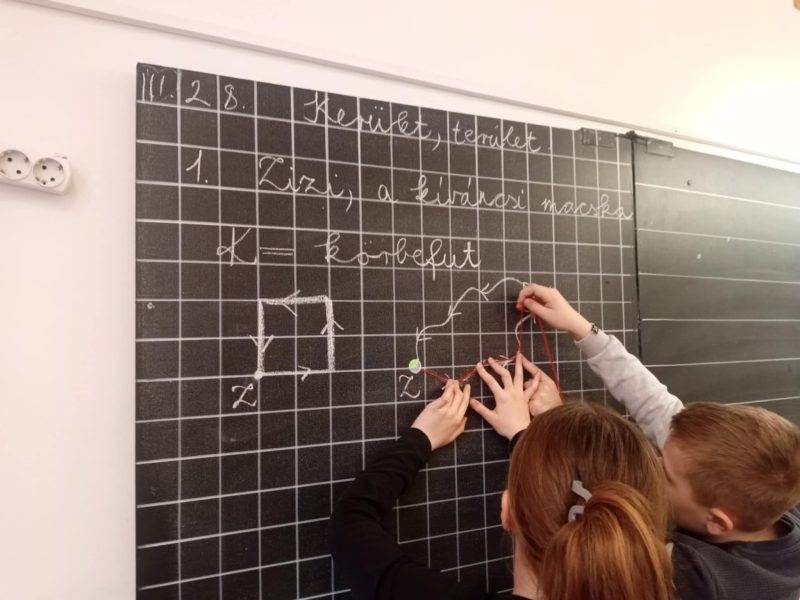 III. 28.
Kerület, terület.
1. Zizi, a kíváncsi macska
K = körbefut
Z
Z